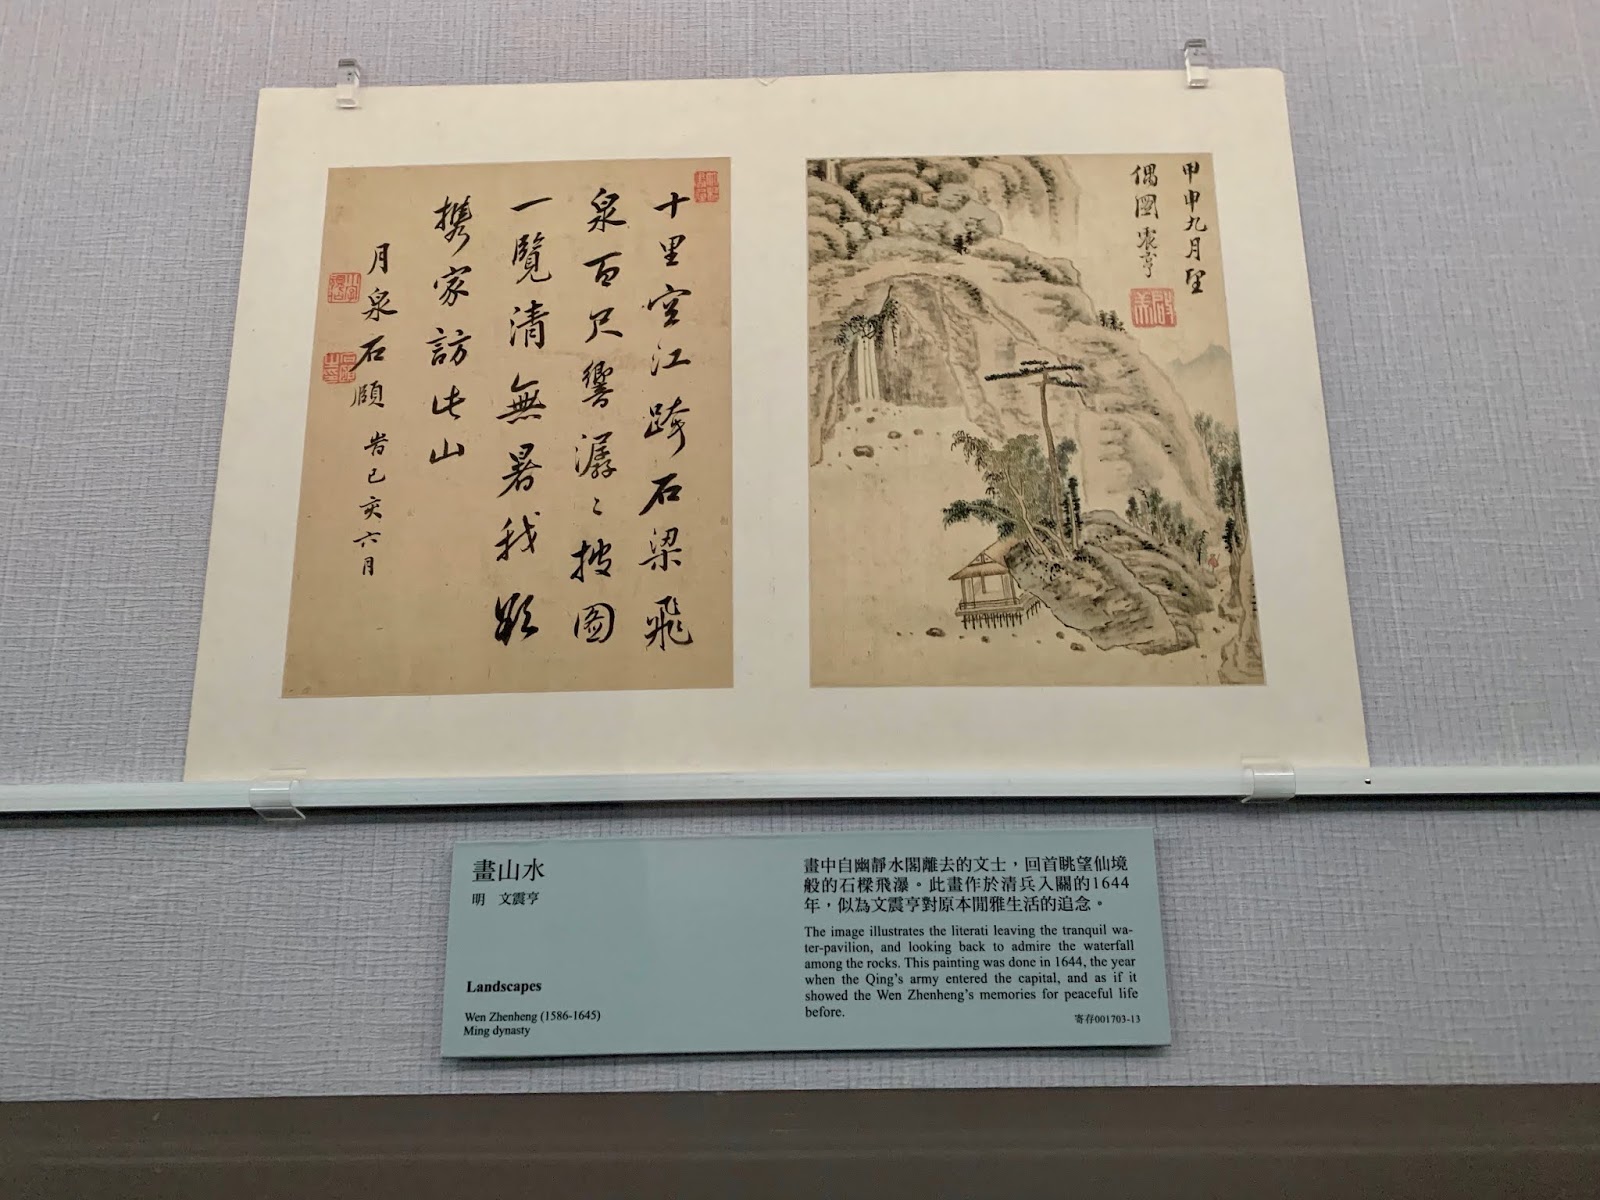 十里空江跨石梁飛
泉百尺響潺〻披圖
一覽清無暑我欲
攜家訪此山
月泉石頤
旹己亥六月
甲申九月望
偶圖 震亨
畫山水
明 文震亨
Landscapes
Wen Zhenheng (1586-1645)
Ming dynasty
畫中自幽靜水閣離去的文士，回首眺望仙境
般的石樑飛瀑。此畫作於清兵入關的1644
年，似為文震亨對原本閒雅生活的追念。
The image illustrates the literati leaving the tranquil wa-
ter-pavilion, and looking back to admire the waterfall
among the rocks. This painting was done in 1644, the year
when the Qing's army entered the capital, and as if it
showed the Wen Zhenheng's memories for peaceful life
before.
寄存001703-13